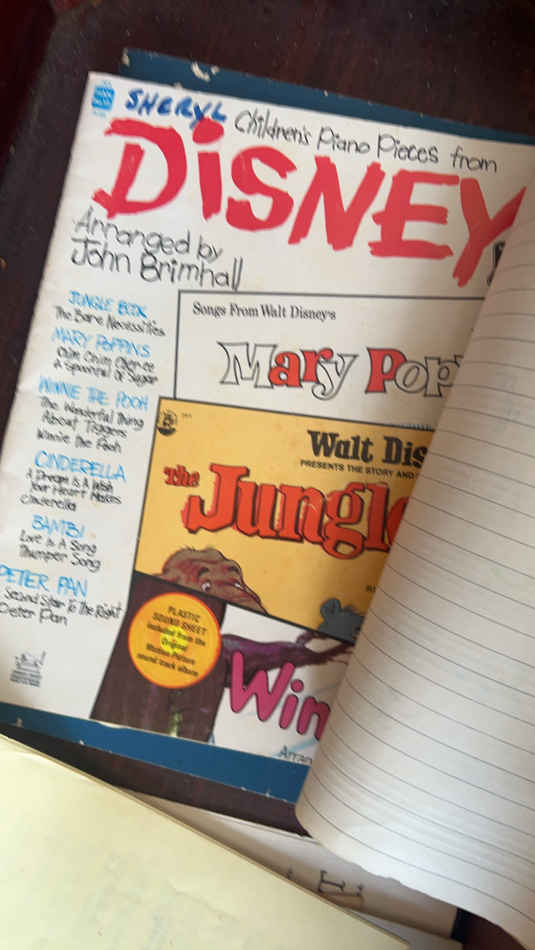 SHERYL
Children's Piano Pieces from
DISNEY
Arranged by
John Brimhall
JUNGLE BOOK
The Bare Necessities
MARY POPPINS
Chim Chim Cher-ee
A Spoonful Of Sugar
WINNIE THE POOH
The Wonderful Thing
About Tiggers
Winnie the Pooh
CINDERELLA
A Dream Is A Wish
Your Heart Makes
Cinderella
BAMBI
Love Is A Song
Thumper Song
PETER PAN
Second Star To The Right
Peter Pan
Songs From Walt Disney's
Mary Pop
Walt Dis
PRESENTS THE STORY AND
The
Jungl
PLASTIC
SOUND SHEET
included from the
Original
Motion Picture
sound track album
Win
Arran